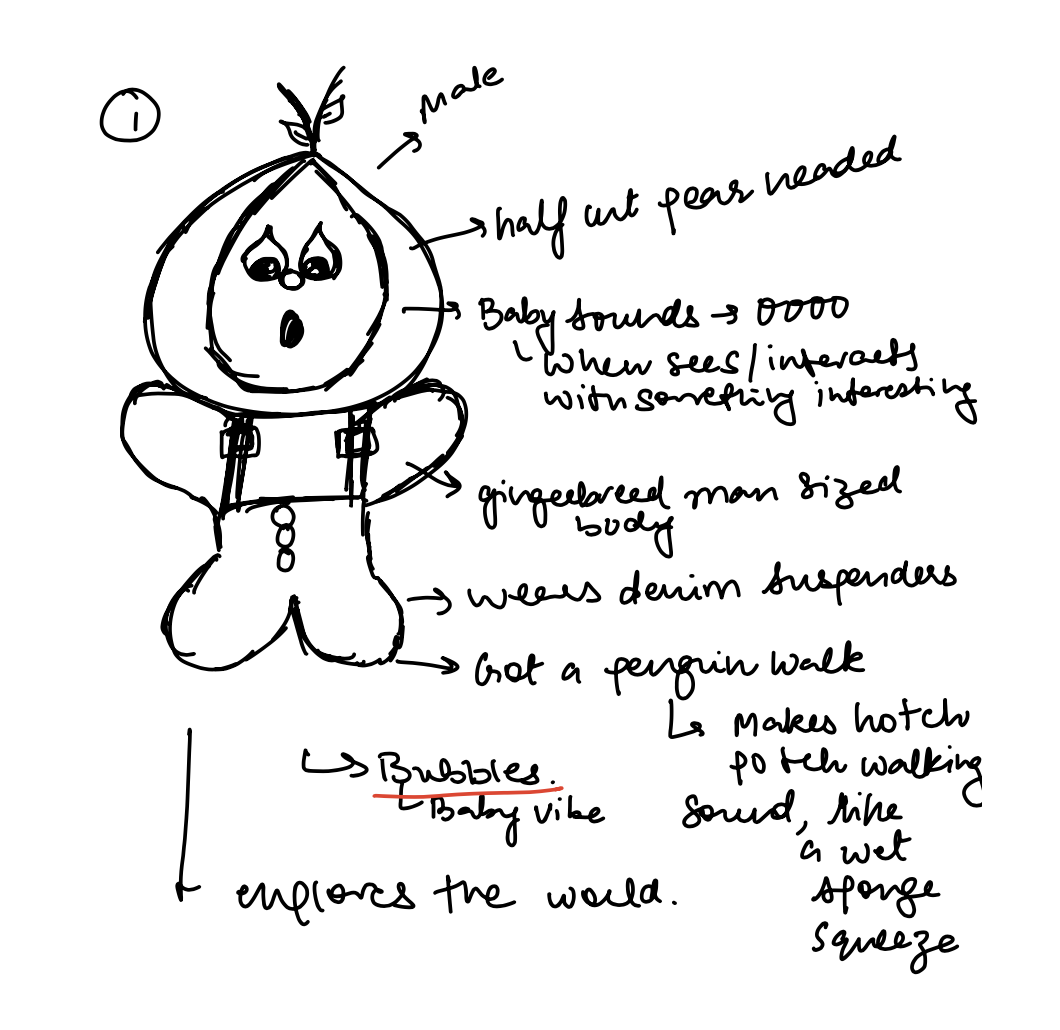 1
Male
half cut pear headed
Baby sounds → oooo
when sees/interacts
with something interesting
gingerbread man sized
body
wears denim suspenders
Got a penguin walk
Makes hotch
potch walking
sound, like
a wet
sponge
squeeze
Bubbles.
Baby vibe
explores the world.